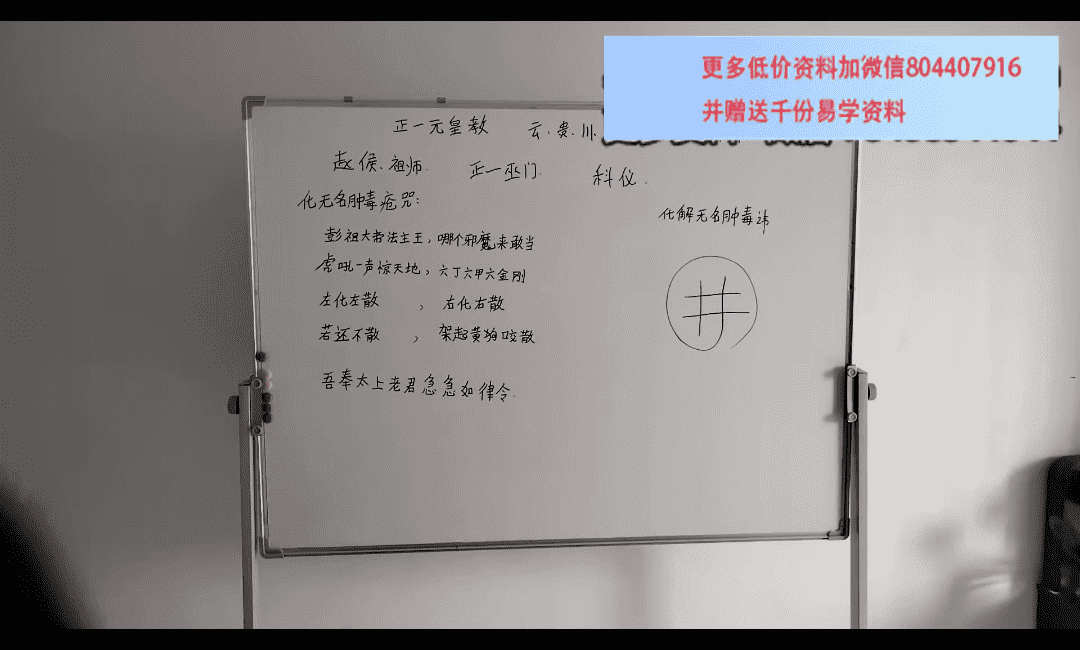 更多低价资料加微信804407916
并赠送千份易学资料
正一元皇教 云、贵、川、
赵侯、祖师. 正一巫门. 科仪.
化无名肿毒疮咒:
彭祖大帝法主王,哪个邪魔来敢当
虎吼一声惊天地,六丁六甲六金刚
左化左散 , 右化右散
若还不散 , 架起黄狗咬散
吾奉太上老君急急如律令.
化解无名肿毒讳
井